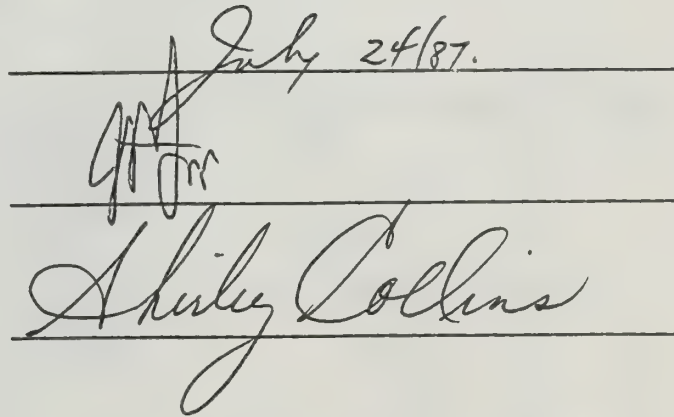 July 24/87.
Shirley Collins